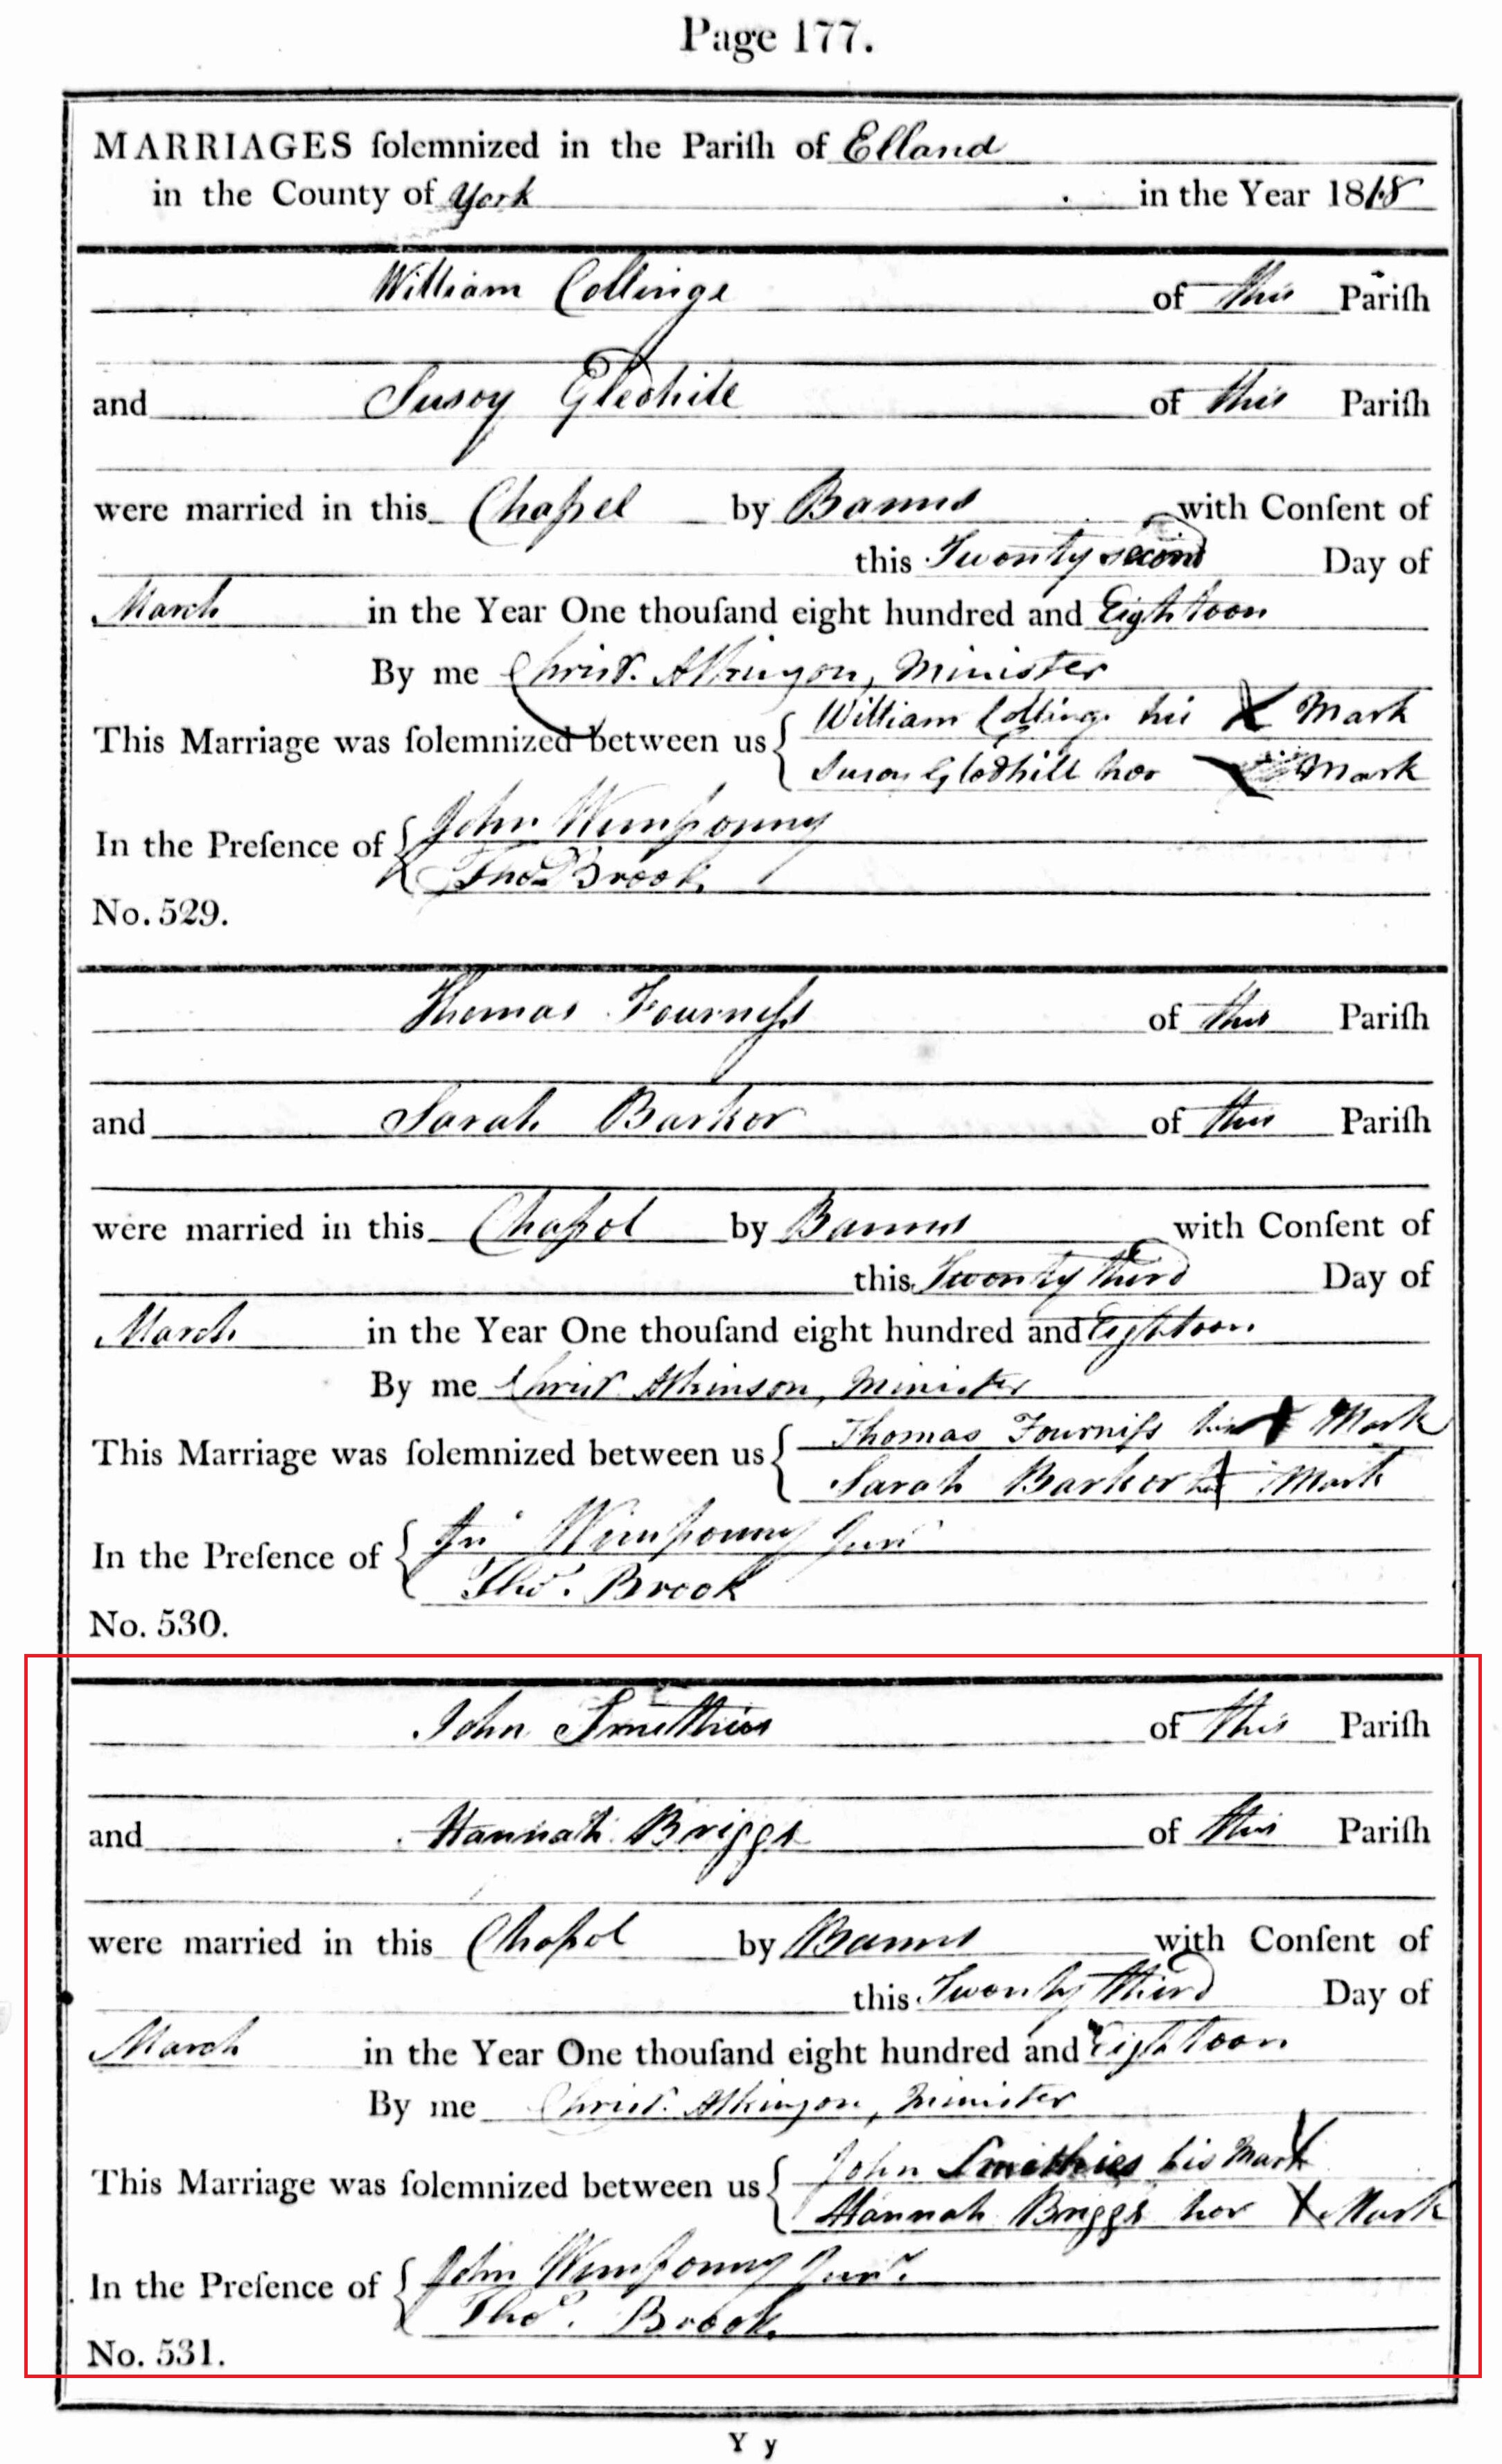 Page 177.
MARRIAGES ſolemnized in the Pariſh of Elland
in the County of York in the Year 1818
William Collinge of this Pariſh
and Susey Gledhill of this Pariſh
were married in this Chapel by Banns with Conſent of
this Twenty second Day of
March in the Year One thouſand eight hundred and Eighteen
By me Christr. Atkinson, Minister
This Marriage was ſolemnized between us William Collinge his X Mark
Susey Gledhill her X Mark
In the Preſence of John Wimpenny
Thos. Brook
No. 529.
Thomas Fourneſs of this Pariſh
and Sarah Barker of this Pariſh
were married in this Chapel by Banns with Conſent of
this Twenty third Day of
March in the Year One thouſand eight hundred and Eighteen
By me Christr. Atkinson, Minister
This Marriage was ſolemnized between us Thomas Fourniſs his X Mark
Sarah Barker her X Mark
In the Preſence of Jn. Wimpenny Junr.
Thos. Brook
No. 530.
John Smithies of this Pariſh
and Hannah Briggs of this Pariſh
were married in this Chapel by Banns with Conſent of
this Twenty third Day of
March in the Year One thouſand eight hundred and Eighteen
By me Christr. Atkinson, Minister
This Marriage was ſolemnized between us John Smithies his Mark X
Hannah Briggs her X Mark
In the Preſence of John Wimpenny Junr.
Thos. Brook
No. 531.
Y y